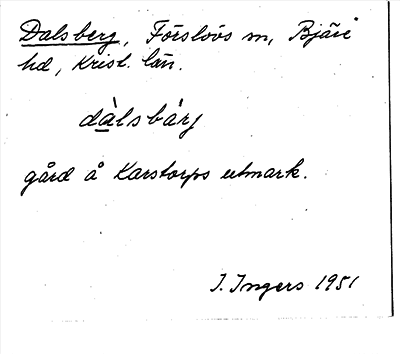 Dalsberg, Förslövs sn, Bjäre
hd, Krist. län.
dàlsbárj
gård å Karstorps utmark.
I. Ingers 1951